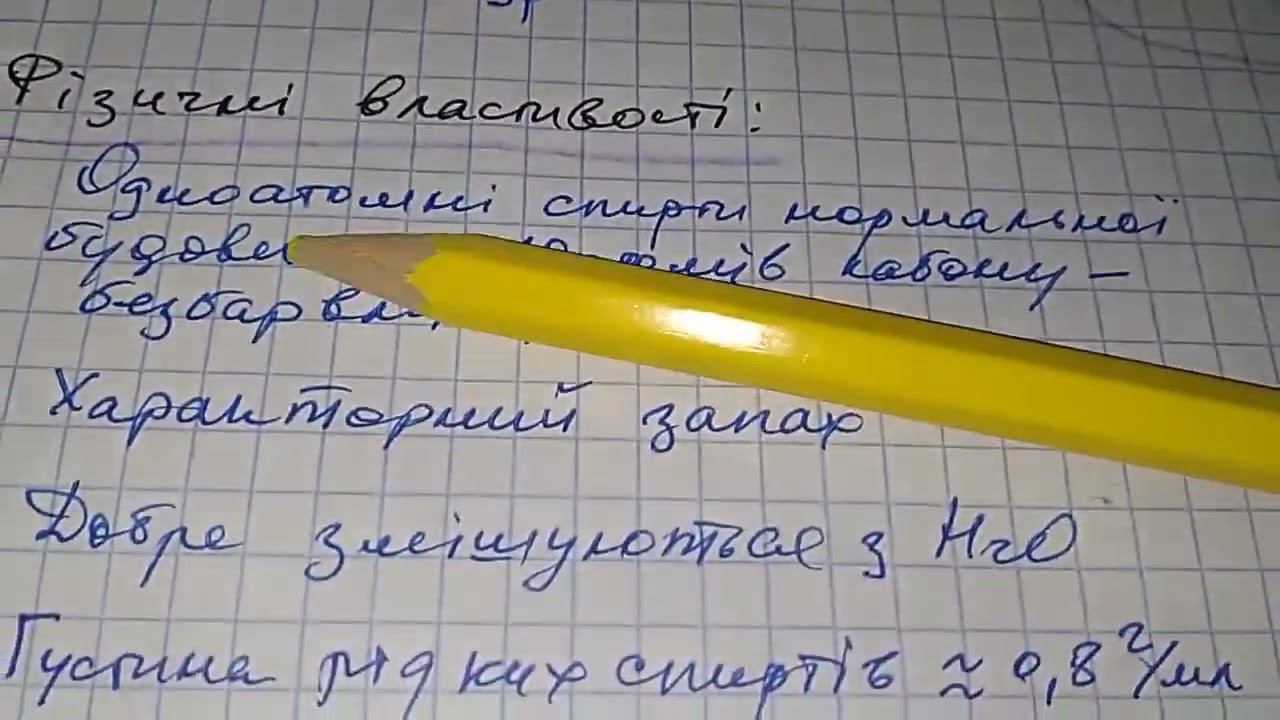 Фізичні властивості:
Одноатомні спирти нормальної
будови кабону –
Характерний запах
Добре змішуються з H2O
Густина рідких спиртів ≈ 0,8 г/мл